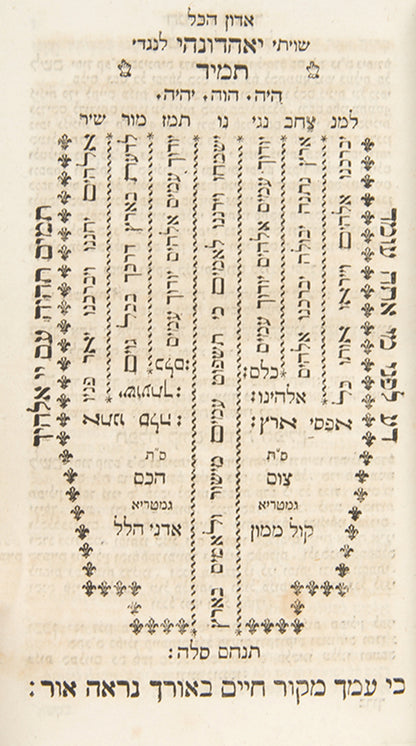 אדון הכל
שויתי יאהדונהי לנגדי
תמיד
היה. הוה. יהיה.
למנ צחב נגי נו תמז מור שיר
דע לפני מי אתה עומד
יברכנו אלהים וייראו אותו כל
אפסי ארץ:
ארץ נתנה יבולה יברכנו אלהים
אלהינו:
יודוך עמים אלהים יודוך עמים
כלם:
ישמחו וירננו לאמים כי תשפוט עמים מישור ולאמים בארץ
יודוך עמים אלהים יודוך עמים
כלם:
לדעת בארץ דרכך בכל גוים
ישועתך:
אלהים יחננו ויברכנו יאר פניו
אתנו סלה:
תמים תהיה עם יי אלהיך
ס"ת
צום
גמטריא
קול ממון
ס"ת
הכם
גמטריא
אדני הלל
תנחם סלה:
כי עמך מקור חיים באורך נראה אור: